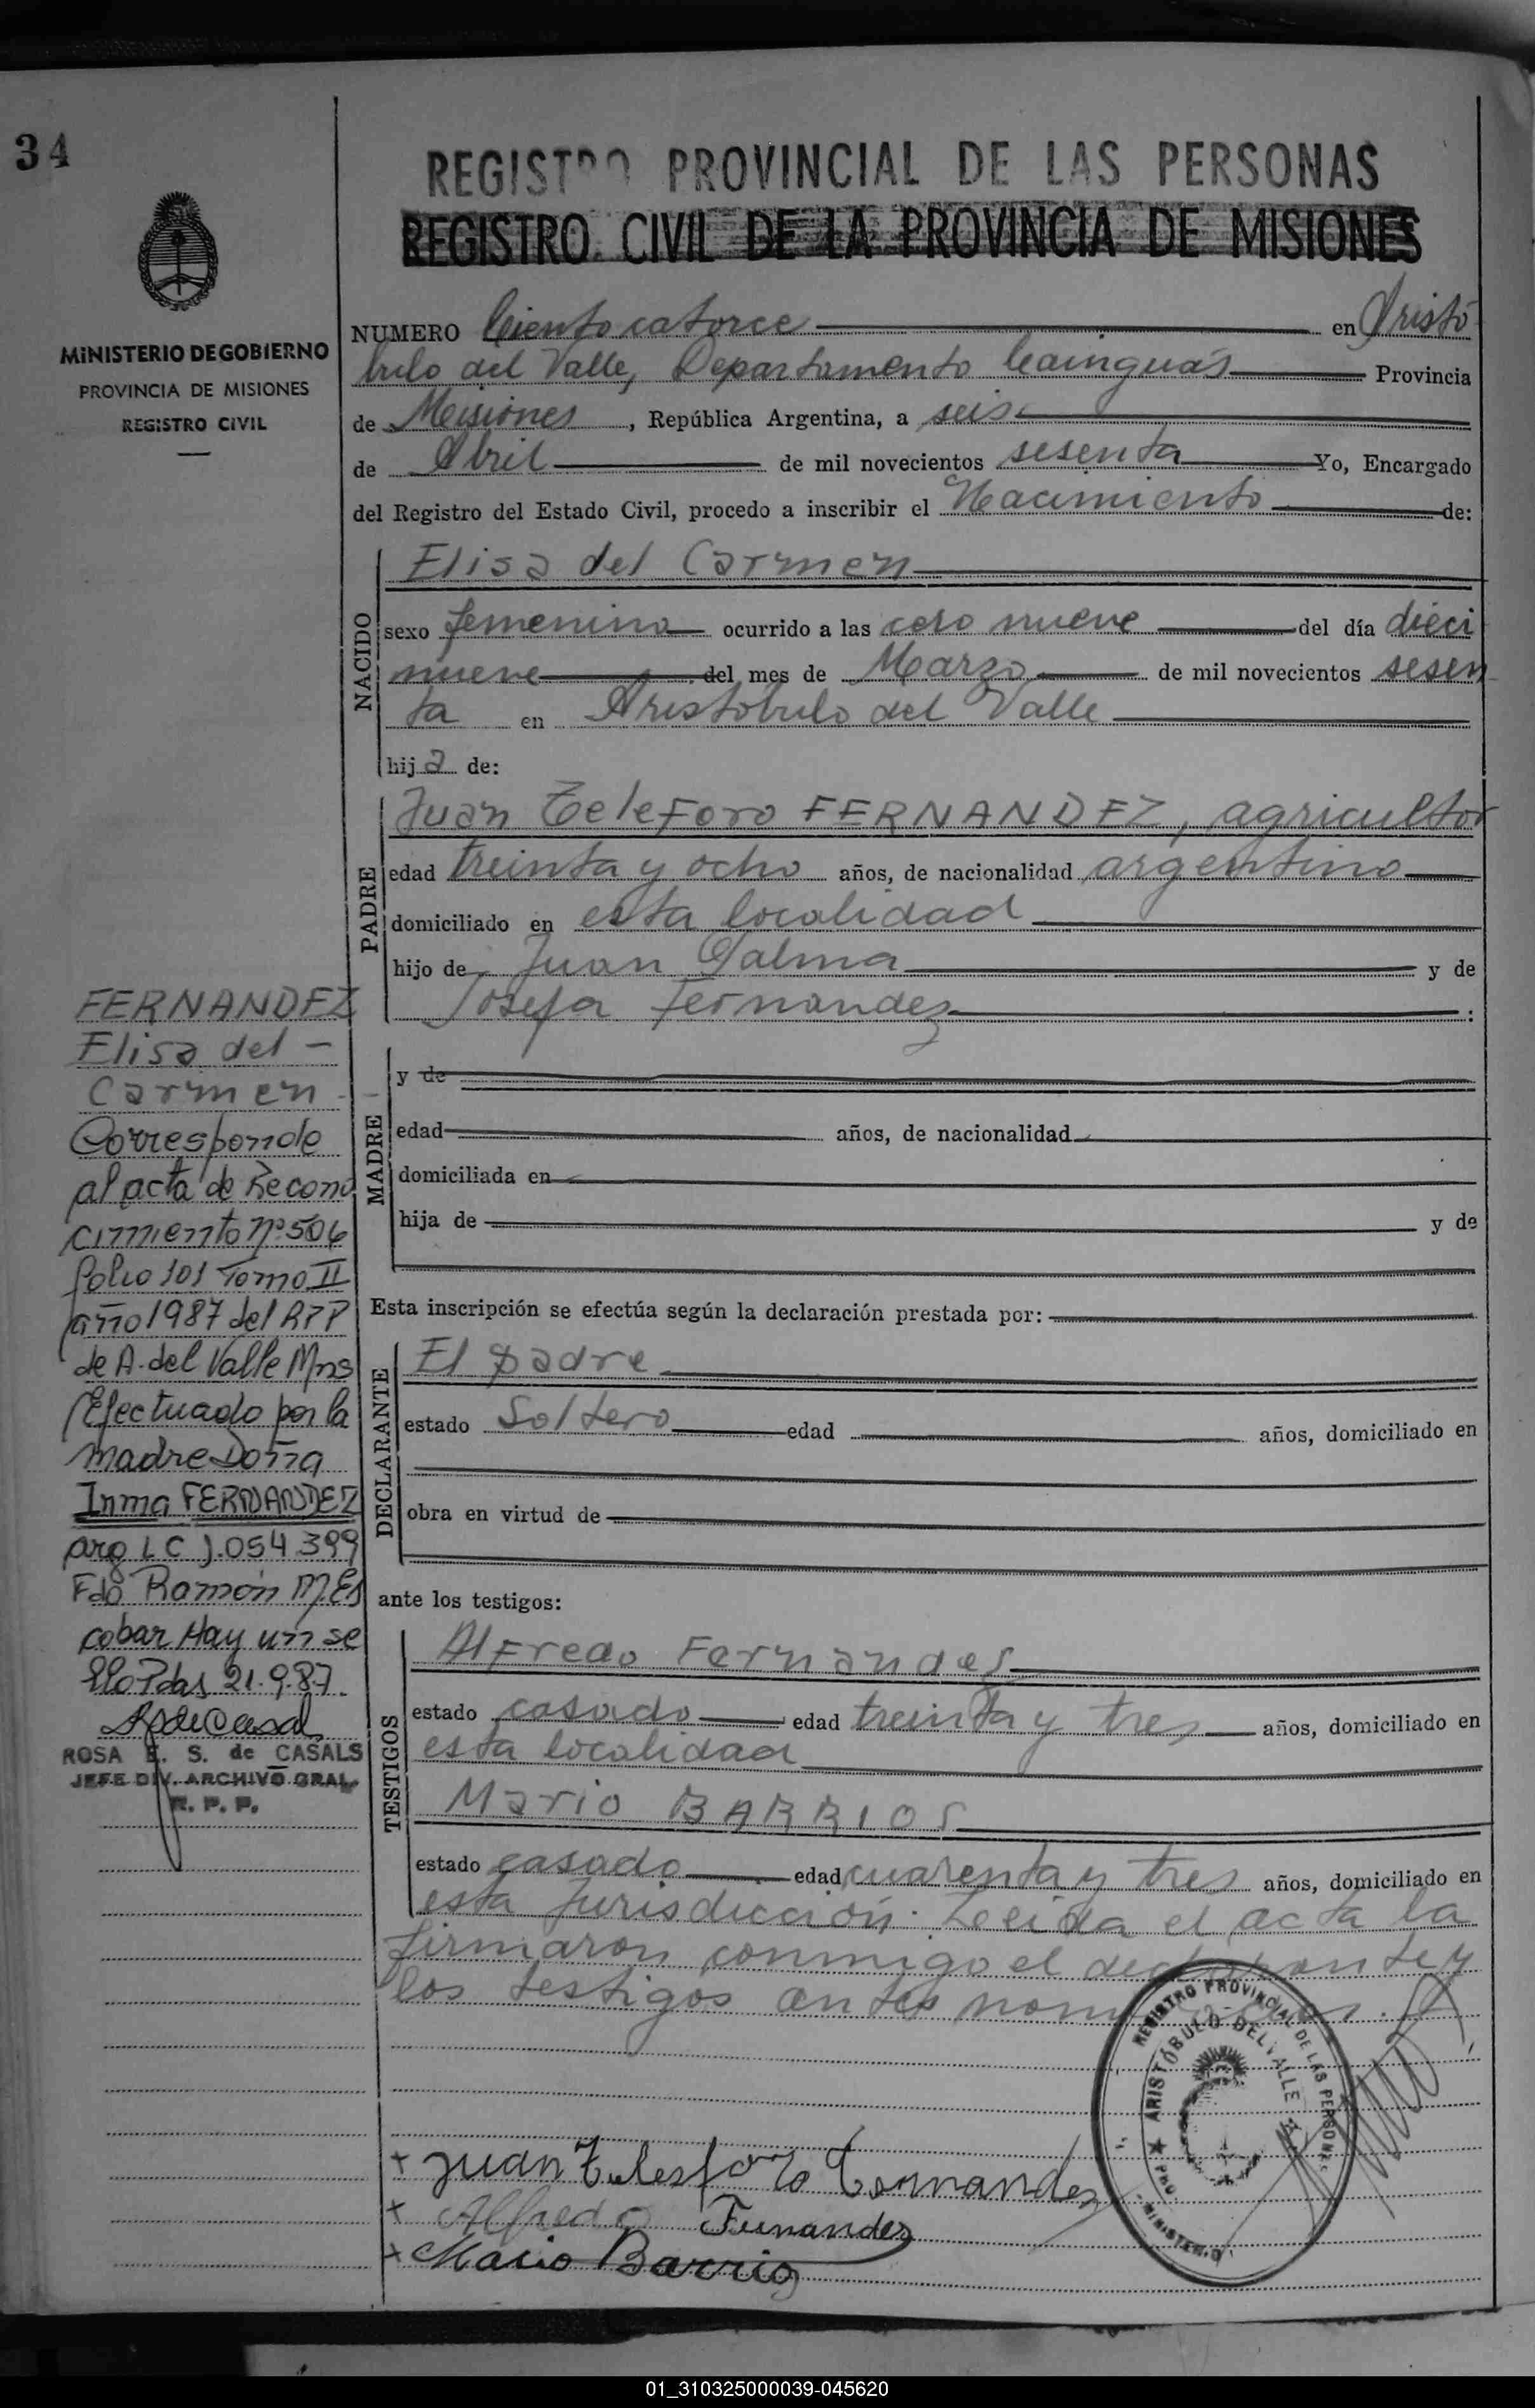 34
REGISTRO PROVINCIAL DE LAS PERSONAS
REGISTRO CIVIL DE LA PROVINCIA DE MISIONES
MINISTERIO DE GOBIERNO
PROVINCIA DE MISIONES
REGISTRO CIVIL
NUMERO Ciento catorce en Aristó
bulo del Valle, Departamento Cainguás Provincia
de Misiones, República Argentina, a seis
de Abril de mil novecientos sesenta Yo, Encargado
del Registro del Estado Civil, procedo a inscribir el Nacimiento de:
NACIDO
Elisa del Carmen
sexo femenino ocurrido a las cero nueve del día dieci
nueve del mes de Marzo de mil novecientos sesen
ta en Aristóbulo del Valle
hija de:
PADRE
Juan Teleforo FERNANDEZ, agricultor
edad treinta y ocho años, de nacionalidad argentino
domiciliado en esta localidad
hijo de Juan Palma y de
Josefa Fernandez :
MADRE
y de
edad años, de nacionalidad
domiciliada en
hija de y de
Esta inscripción se efectúa según la declaración prestada por:
DECLARANTE
El padre
estado Soltero edad años, domiciliado en
obra en virtud de
ante los testigos:
TESTIGOS
Alfredo Fernandes
estado casado edad treinta y tres años, domiciliado en
esta localidad
Mario BARRIOS
estado casado edad cuarenta y tres años, domiciliado en
esta jurisdicción. Leída el acta la
firmaron conmigo el declarante y
los testigos antes
FERNANDEZ
Elisa del -
Carmen -
Corresponde
al acta de Recono
cimiento nº 506
folio 101 Tomo II
año 1987 del RPP
de A. del Valle Mns
Efectuado por la
madre Doña
Inma FERNANDEZ
arg L C 1.054.399
Fdo Ramón M. Es
cobar Hay un se
llo Pdas 21.9.87.
ROSA E. S. de CASALS
JEFE DIV. ARCHIVO GRAL.
R. P. P.
+ Juan Telesforo Fernandez
+ Alfredo Fernandez
+ Mario Barrios
REGISTRO PROVINCIAL DE LAS PERSONAS
ARISTÓBULO DEL VALLE
MINISTERIO
01_310325000039-045620